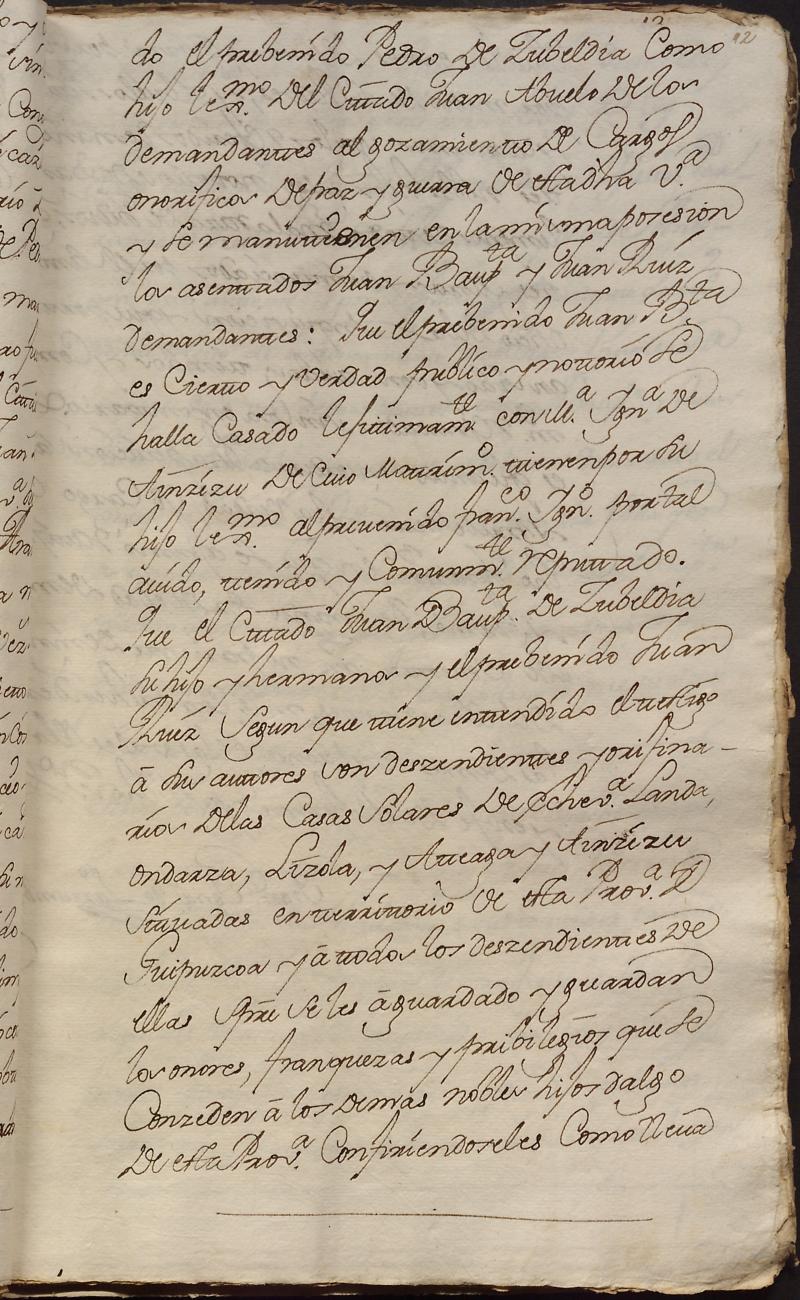 12
do el prebenido Pedro de Zubeldia Como
hijo lexmo. del Cittado Juan Abuelo de los
demandanttes al gozamientto de Cargos
onorificos de paz y guerra de esta dha V.a
y se manuttienen en la misma posesion
los asenttados Juan Baupta y Juan Ruiz
demandanttes: que el prebenido Juan Bta
es Ciertto y Verdad publico y nottorio se
halla Casado lejittimamte. con M.a Ign.a de
Ainzizu de Cuio Mattrim.o ttienen por su
hijo lexmo. al prevenido fran.co Ign.o por tal
auido, ttenido y Comunmte. reputtado.
Que el Cittado Juan Baupta. de Zubeldia
su hijo y hermanos y el prebenido Juan
Ruiz Segun que ttiene enttendido el ttestigo
á sus auttores son deszendienttes y orijina-
rios de las Casas Solares de Echev.a Landa,
ondarza, Lizola, y Atteaga y Ainzizu
Sittuadas en tterrittorio de esta Prov.a de
Guipuzcoa y á ttodos los deszendienttes de
ellas spre se les á guardado y guardan
los onores, franquezas y pribilegios que se
Conzeden á los demas nobles hijos dalgo
de esta Prov.a Confiriendoseles Como lleua